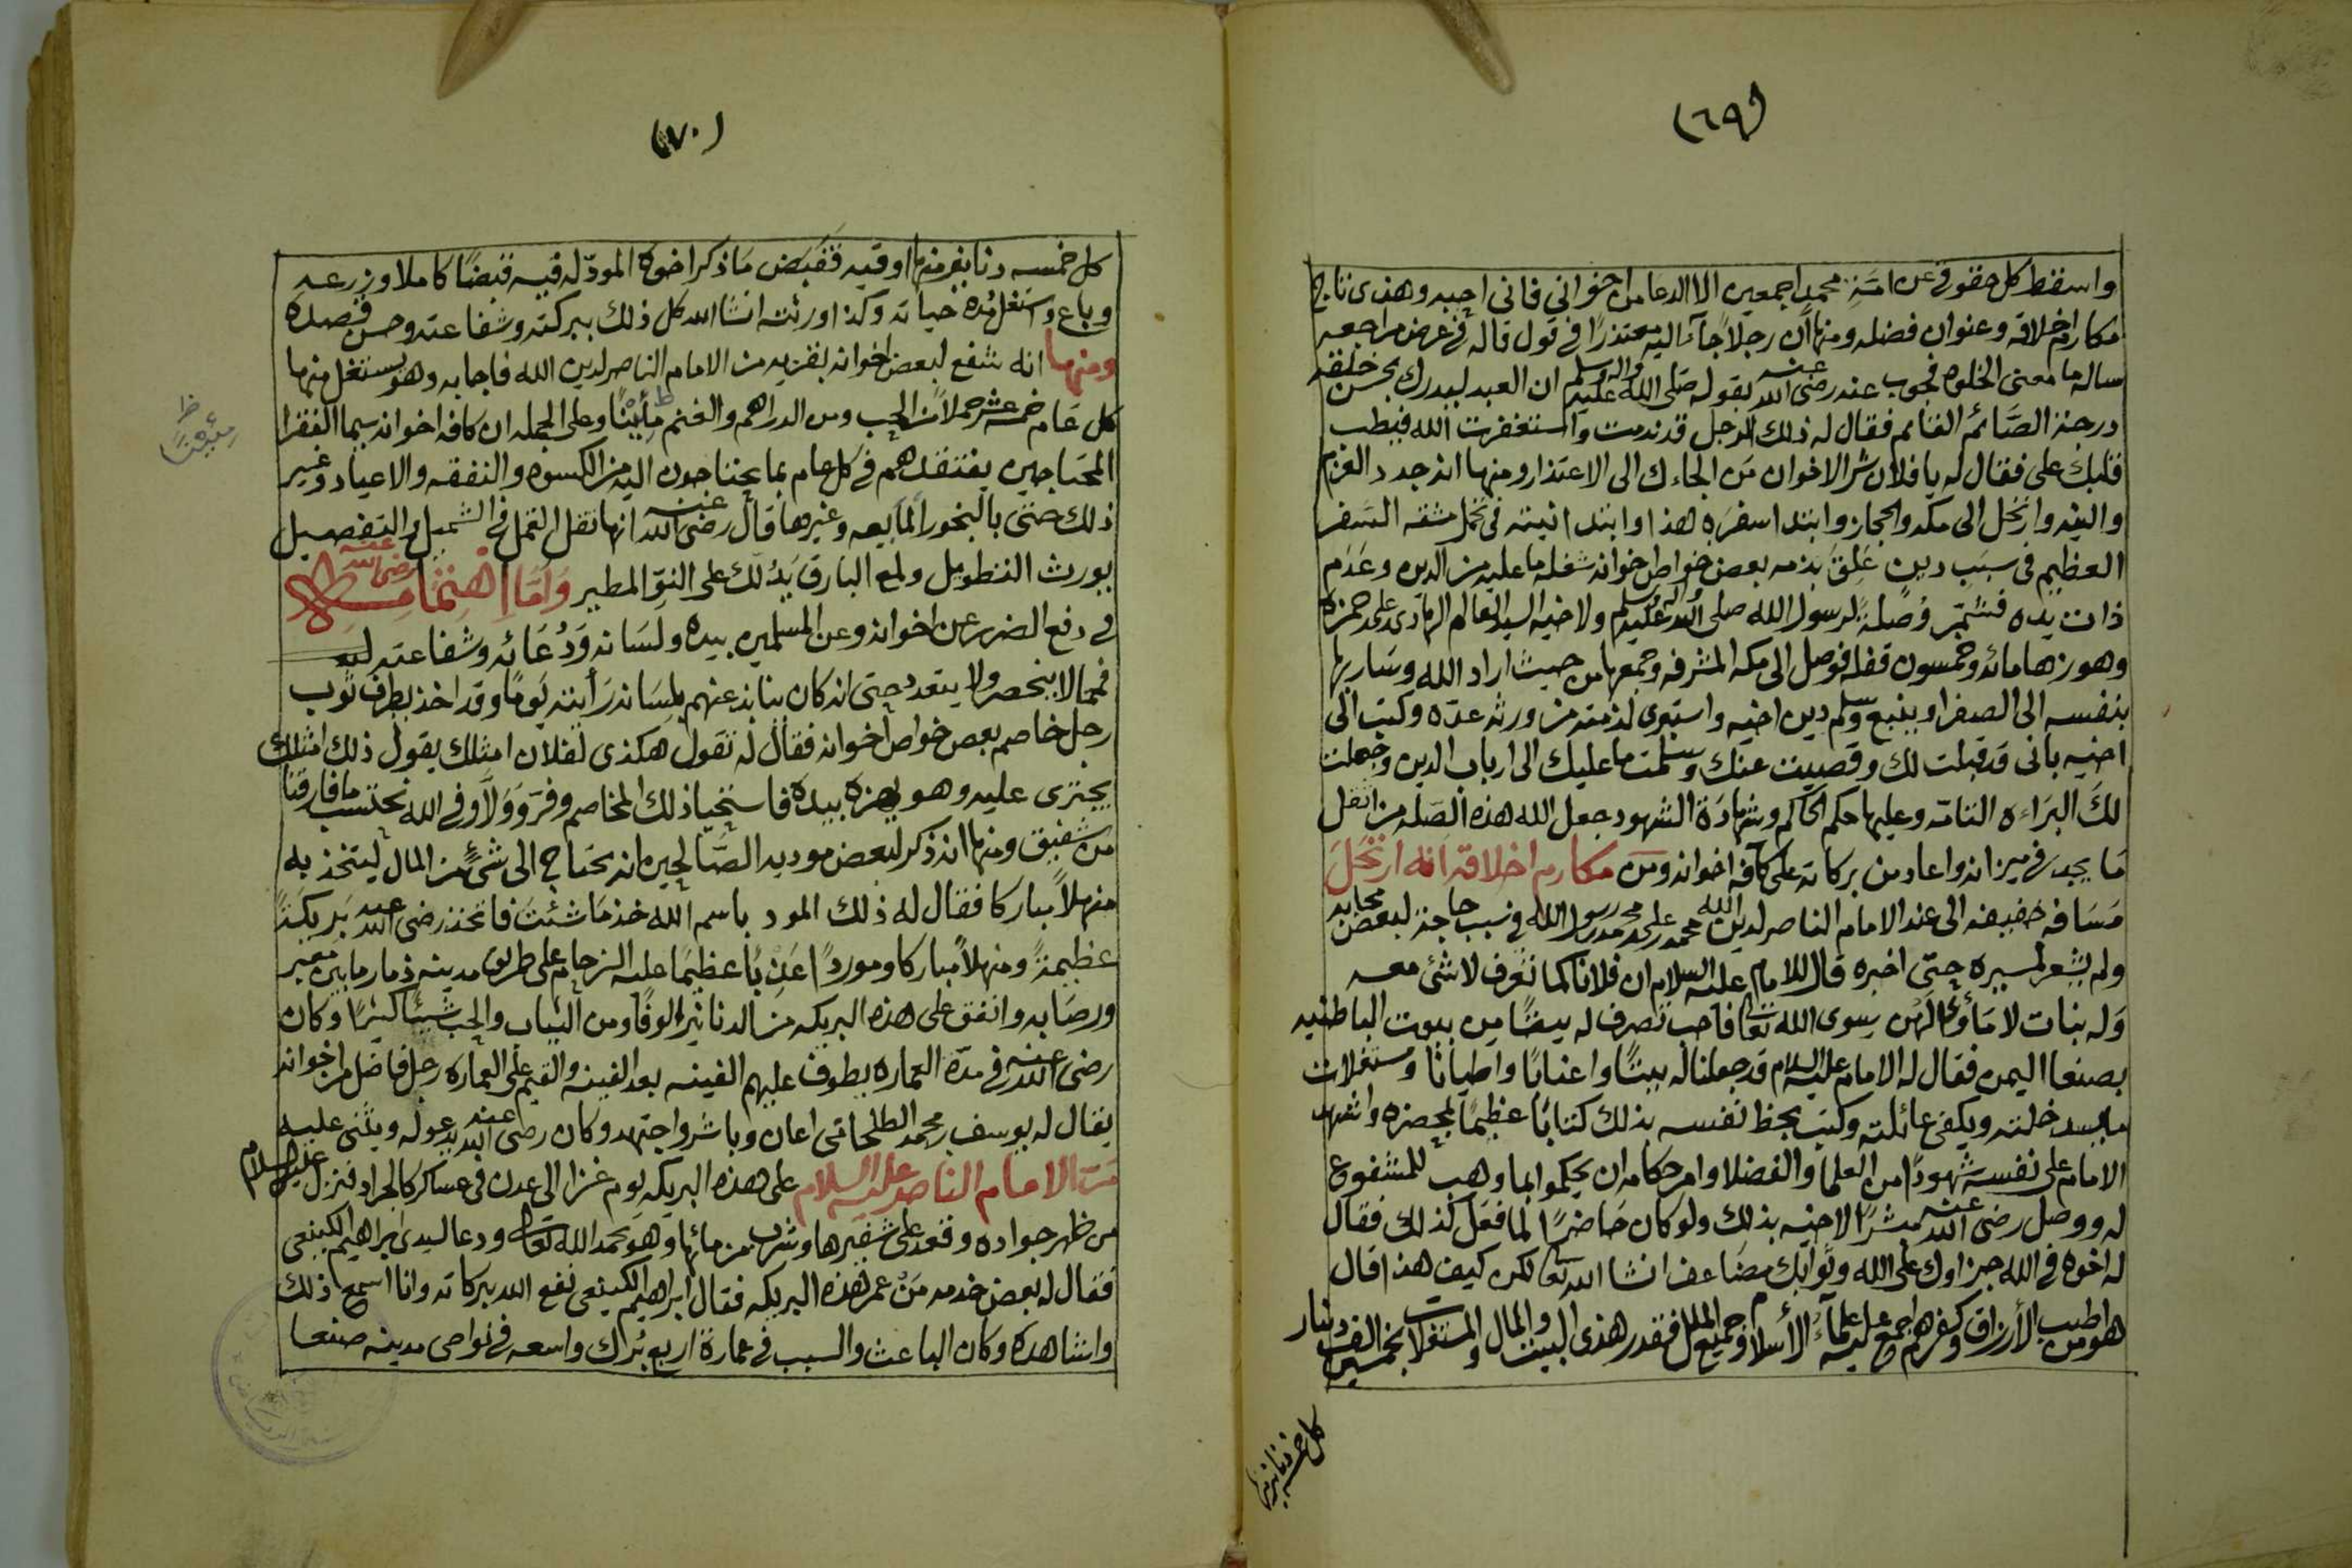 (٦٩)
واسقط كل حقوقي عن امة محمد اجمعين الا الدعا من اخواني فاني احبه وهذى تاج
مكارم اخلاقه وعنوان فضله ومنها أن رجلاً جآء اليه معتذرًا في قول قاله في عرض مراجعه
ساله ما معنى الخلوه فجوب عنه رضى الله عنه بقوله صلى الله عليه واله وسلم ان العبد ليدرك بحسن خلقه
درجة الصَائم القائم فقال له ذلك الرجل قد ندمت واستغفرت الله فيطب
قلبك على فقال له يا فلان شر الاخوان مَن الجاءك الى الاعتذار ومنها انه جدد العزم
والنيه وارتحل الى مكه والحجاز وابتدا سفرَه هذا وابتدا نيته في تحمل مشقه السَفر
العظيم في سبَب دين عَلِقَ بذمه بعض خواص اخوانه شغله ما عليه من الدين وعَدَم
ذات يده فشمّر وُصلةً لرسول الله صلى الله عليه واله وسلم ولاخيه السيد العالم الهادى بن على حمزه
وهو زها مائه وخمسون قفله فوصل الى مكه المشرفه وجمعها من حيث اراد الله وسَار بها
بنفسه الى الصفراو ينبع وسلم دين اخيه واستبرى لذمته من ورثه عدّه وكتب الى
اخيه بانى قد قبلت لك وقضيت عنك وسلمت ما عليك الى ارباب الدين وجعلت
لكَ البرَاءه التامّه وعليها حكم الحاكم وشهادَة الشهود جعل الله هذه الصَله من اثقل
مَا يجد في ميزانه واعاد من بركاته على كآفه اخوانه ومن مكارم اخلاقه انه ارتحَلَ
مَسَافه خفيفه الى عند الامام الناصر لدين الله محمد بن على بن محمد بن رسول الله في سبب حاجة لبعض محابه
ولم يشعر لمسيره حتى اخبره قال للامام عليه السلام ان فلانا كما تعرف لا شئ معه
وَله بنات لا مَأوى لهُن سوى الله تعالى فاحب تصرف له بيتًا من بيوت الباطنيه
بصنعا اليمن فقال له الامام عليه السلام قد جعلنا له بيتًا واعنابًا واطيانًا ومستغلات
ما يسد خلته ويكفى عائلته وكتب بخط نفسه بذلك كتابًا عظيمًا بمحضره واشهد
الامام على نفسه شهودًا من العلما والفضلا وامر حكامه ان يحكموا بما وهب للمشفوع
له ووصل رضى الله عنه مبشرًا لاخيه بذلك ولو كان حَاضرًا لما فعَل كذلك فقال
له اخوه في الله جزاوك على الله وثوابك مضَاعف انشا الله تعالى لكن كيف هذا قال
هو من اطيب الأرزاق وكفرهم اجمع عليه علمآء الأسلام وجميع الملل فقدر هذى البيت والمال والمستغلات بخمسين الف دينار
كل خمسه دنانير منها
(٧٠)
كل خمسه دنانير منها اوقيه فقبَض مَا ذكر اخوه المودّ له فيه قبضًا كاملا وزرعه
وباع واستغل مُده حياته وكذا ورثته انشا الله كل ذلك ببركته وشفاعته وحسن قصده
ومنها انه شفع لبعض اخوانه بقريه من الامام الناصر لدين الله فاجابه وهو يستغل منها
كل عَام خمسة عشر حملاً من الحب ومن الدراهم والغنم مأيينًا وعلى الجمله ان كافه اخوانه سيما الفقرا
المحتاجين يفتقدهم في كل عام بما يحتاجون اليه من الكسوه والنفقه والاعياد وغير
ذلك حتى بالبخور المأيعه وغيرها قال رضى الله عنه انها تقل القمل في الشميل والتفصيل
يورث التطويل ولمع البارق يَدُ لك على النوّ المطير وَامّا اهتمامه رضى الله عنه
في دفع الضرر عن اخوانه وعن المسلمين بيده ولسَانه وَدُعَائه وشفاعته لهم
فمما لا ينحصر ولا يتعدد حتى انه كان ينابذ عنهم بلسَانه رَأيته يَومًا وقد اخذ بطرف ثَوب
رجل خاصم بعض خواص اخوانه فقال له تقول هكذى لفلان امثلك يقول ذلك امثلك
يجترى عليه وهو يهزه بيده فاستحيا ذلك المخاصم وفرّ وَوَلاّ وفي الله نحتسب ما فارقنا
من شفيق ومنها انه ذكر لبعض موديه الصَالحين انه يحتاج الى شئٍ من المال ليتخذ به
منهلاً مباركا فقال له ذلك المود باسم الله خذ مَا شئتَ فاتخذ رضى الله عنه بَريكَةً
عظيمةً ومنهلاً مباركا وموردًا عَذبًا عظيمًا عليه الزحام على طريق مدينه ذمار ما بين معبر
ورصَابه وانفق على هذه البريكه من الدنانير الوفًا ومن الثياب والحب شيئًا كثيرًا وكان
رضى الله عنه في مدّة العماره يطوف عليهم الفينه بعد الفينه والقيم على العماره رجل فاضل من اخوانه
يقال له يوسف بن محمد الطلحاتى اعان وباشر واجتهد وكان رضى الله عنه يدعو له ويثنى عليه
مَرّ الامام الناصر عليه السلام على هذه البريكه يوم غزا الى عدن في عساكر كالجراد فنزل عليه السلام
من ظهر جواده وقعد على شفيرها وشرب من مائها وَهو يحمد الله تعالى ودعا لسيدى ابراهيم الكينعى
فقال له بعض خدمه مَنْ عمر هذه البريكه فقال ابراهيم الكينعى نفع الله ببركاته وانا اسمع ذلك
واشاهده وكان الباعث والسبب في عمارة اربع بُرَك واسعه في نواحى مدينه صنعا